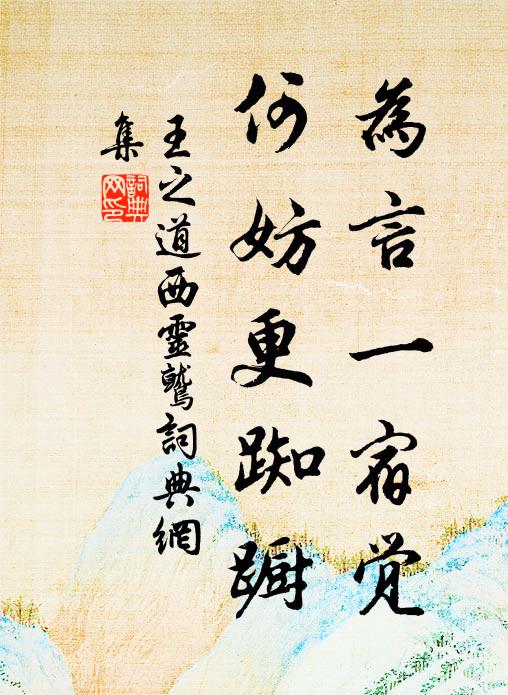 為言一宿覚
何妨更踟蹰
王之道西靈鷲詞典網
集
詞典
网印